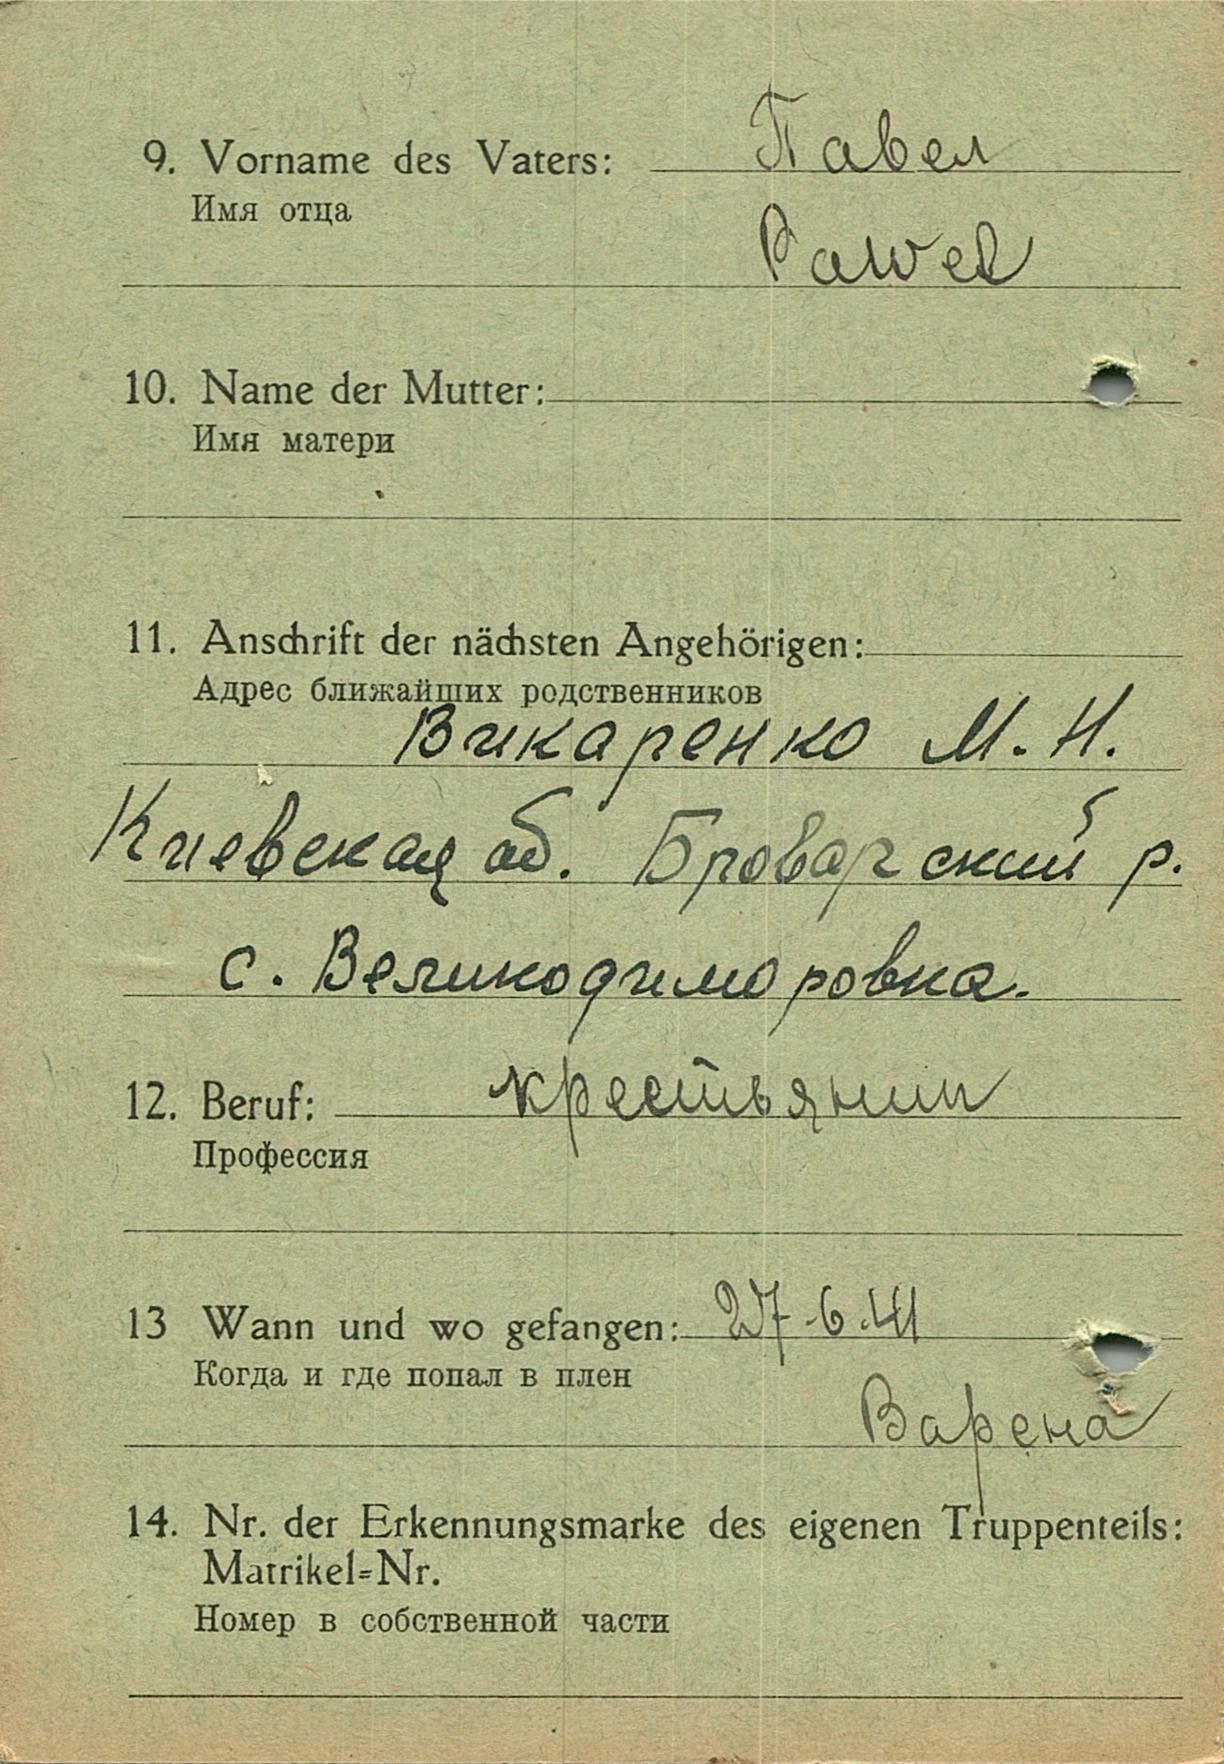 9. Vorname des Vaters: Павел
Имя отца
Pawel
10. Name der Mutter:
Имя матери
11. Anschrift der nächsten Angehörigen:
Адрес ближайших родственников
Викаренко М. Н.
Киевская об. Броварский р.
с. Великодиморовка.
12. Beruf: крестьянин
Профессия
13 Wann und wo gefangen: 27.6.41
Когда и где попал в плен
Варена
14. Nr. der Erkennungsmarke des eigenen Truppenteils:
Matrikel=Nr.
Номер в собственной части